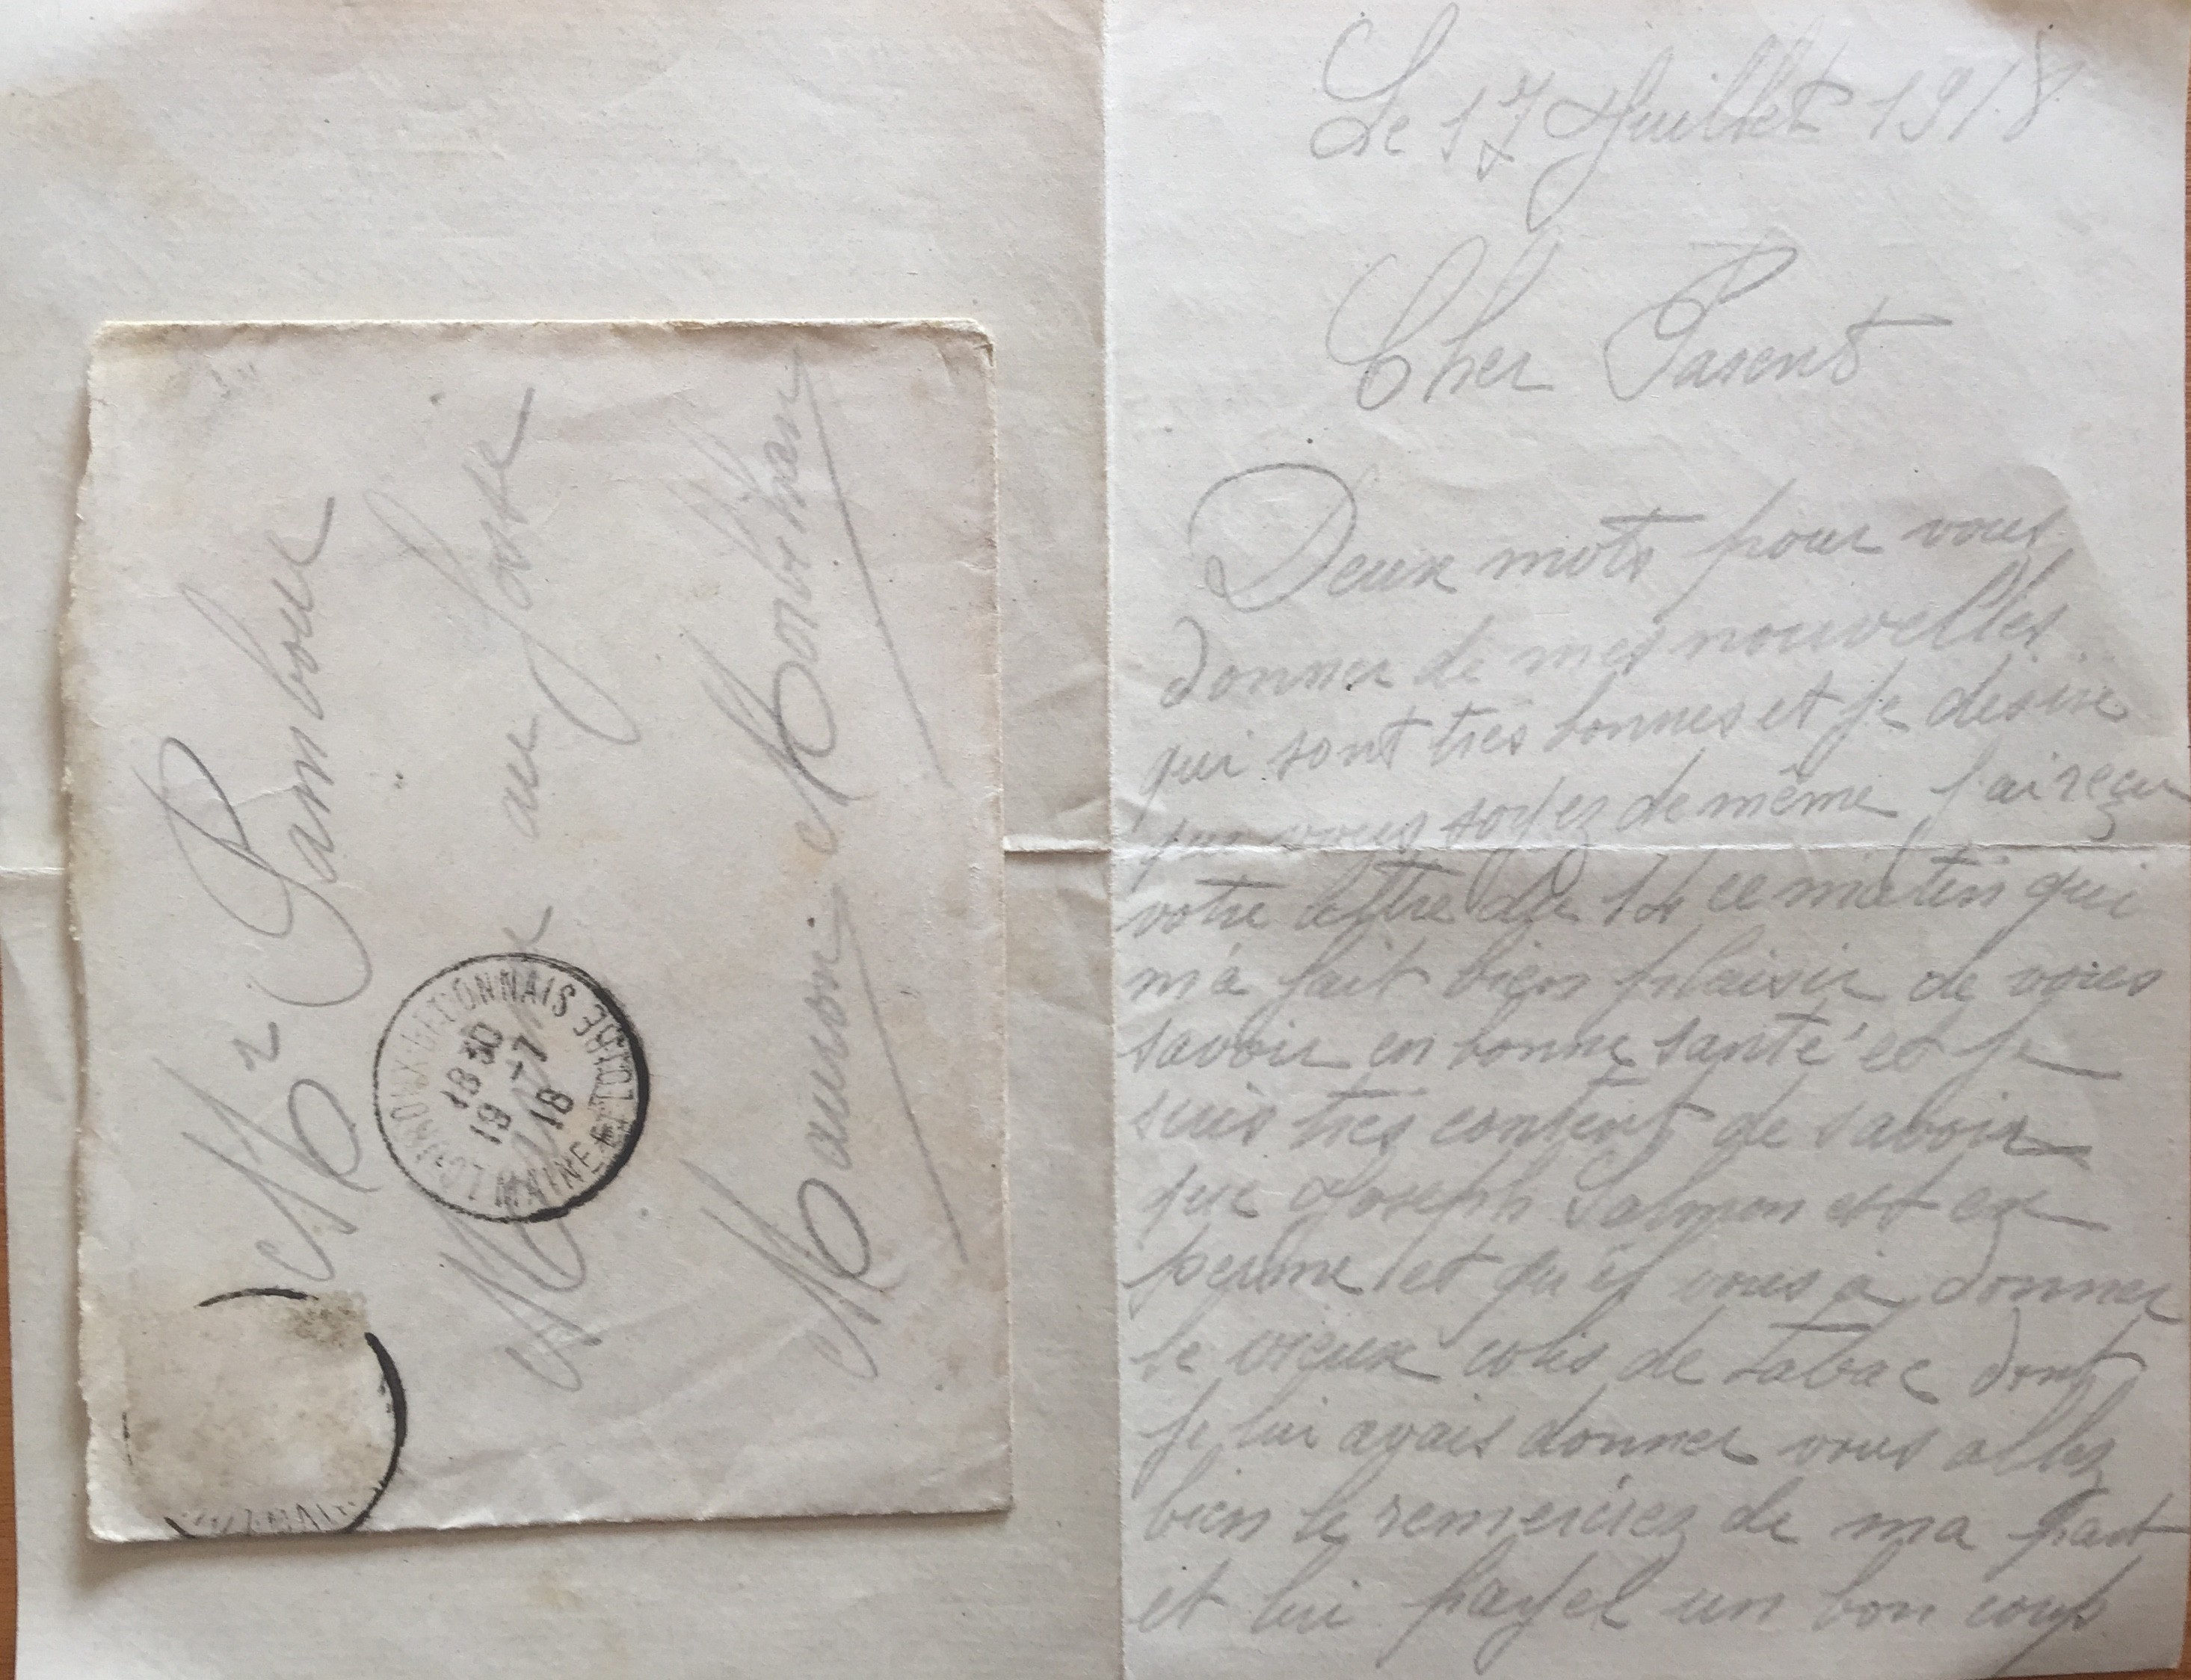 Mr Pambour
au Josse
Mauron Morbihan
LE LOROUX-BECONNAIS
18 30
19 -7
18
MAINE ET LOIRE
Le 17 Juillet 1918
Cher Parent
Deux mots pour vous
donner de mes nouvelles
qui sont très bonnes et je désire
que vous soyez de même j'ai reçu
votre lettre du 14 ce matin qui
m'a fait bien plaisir de vous
savoir en bonne santé et je
suis très content de savoir
que Joseph Salmon est en
perme et qu'il vous à donner
le vieux colis de tabac dont
je lui avais donner vous allez
bien le remerciez de ma part
et lui payer un bon coup